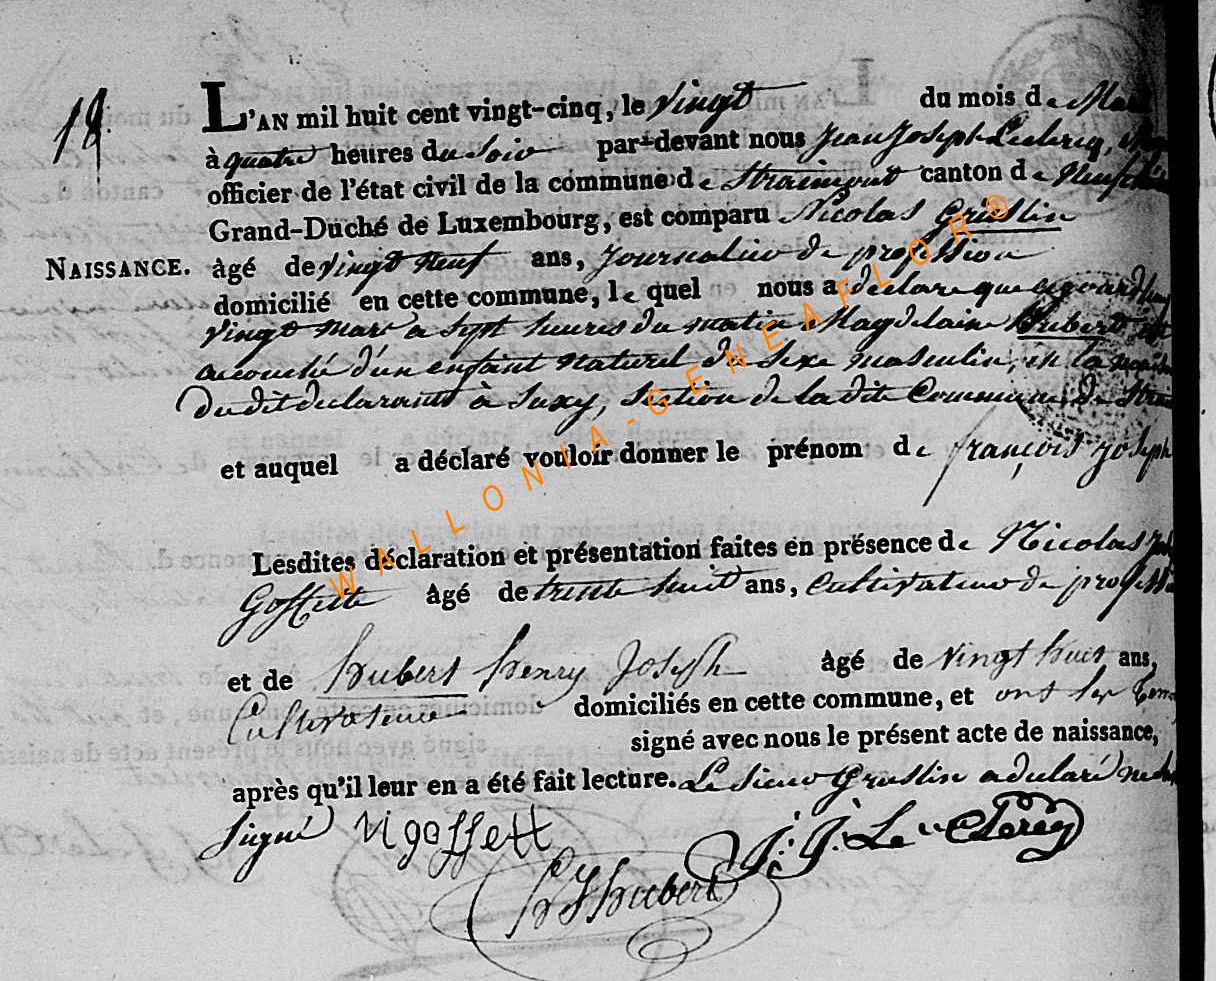 18
L'AN mil huit cent vingt-cinq, le vingt du mois de Mars
à quatre heures du Soir par-devant nous Jean Joseph Leclercq,
officier de l'état civil de la commune de Straimont canton de
Grand-Duché de Luxembourg, est comparu Nicolas Gruslin
NAISSANCE. âgé de vingt neuf ans, Journalier de profession
domicilié en cette commune, le quel nous a declaré que
vingt mars à Sept heures du matin Magdelaine Hubert est
accouché d'un enfant naturel du Sexe masculin, en la
du dit declarant à Suxy, Section de la dite Commune de
et auquel a déclaré vouloir donner le prénom de françois Joseph
Lesdites déclaration et présentation faites en présence de Nicolas
Goffette âgé de trente huit ans, Cultivateur de
et de Hubert Henry Joseph âgé de vingt huit ans,
Cultivateur domiciliés en cette commune, et ont
signé avec nous le présent acte de naissance,
après qu'il leur en a été fait lecture. Le Sieur Gruslin a declaré
Signé N goffett J: J. Le Clercq
H J Hubert
WALLONIA-GENEAFLOR®